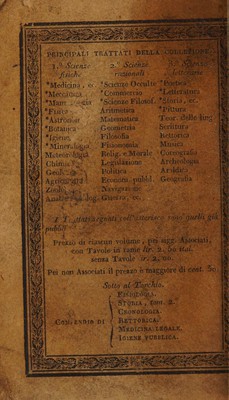 PRINCIPALI TRATTATI DELLA COLLEZIONE
1.ª Scienze 2.ª Scienze 3.ª Scienze
fisiche razionali letterarie
*Medicina, ec. *Scienze Occulte *Poetica
*Meccanica *Commercio *Letteratura
*Scienze Filosof. *Storia, ec.
*Fisica Aritmetica *Pittura
*Astronomia Matematica Teor. delle ling.
*Botanica Geometria Scrittura
*Igiene Filosofia Rettorica
*Mineralogia Fisionomia Musica
Meteorologia Relig. e Morale Corografia
Chimica Legislazione Archeologia
Geologia Politica Araldica
Agricoltura Econom. pubbl. Geografia
Zoologia Navigazione
Guerra, ec.
I Trattati segnati coll'asterisco sono quelli già
pubblicati
Prezzo di ciascun volume, per ogg. Associati,
con Tavole in rame lir. 2. 50 ital.
senza Tavole lir. 2. 00.
Pei non Associati il prezzo è maggiore di cent. 50
Sotto al Torchio.
STORIA, tom. 2.
CRONOLOGIA.
COMPENDIO DI RETTORICA.
MEDICINA LEGALE.
IGIENE PUBBLICA.